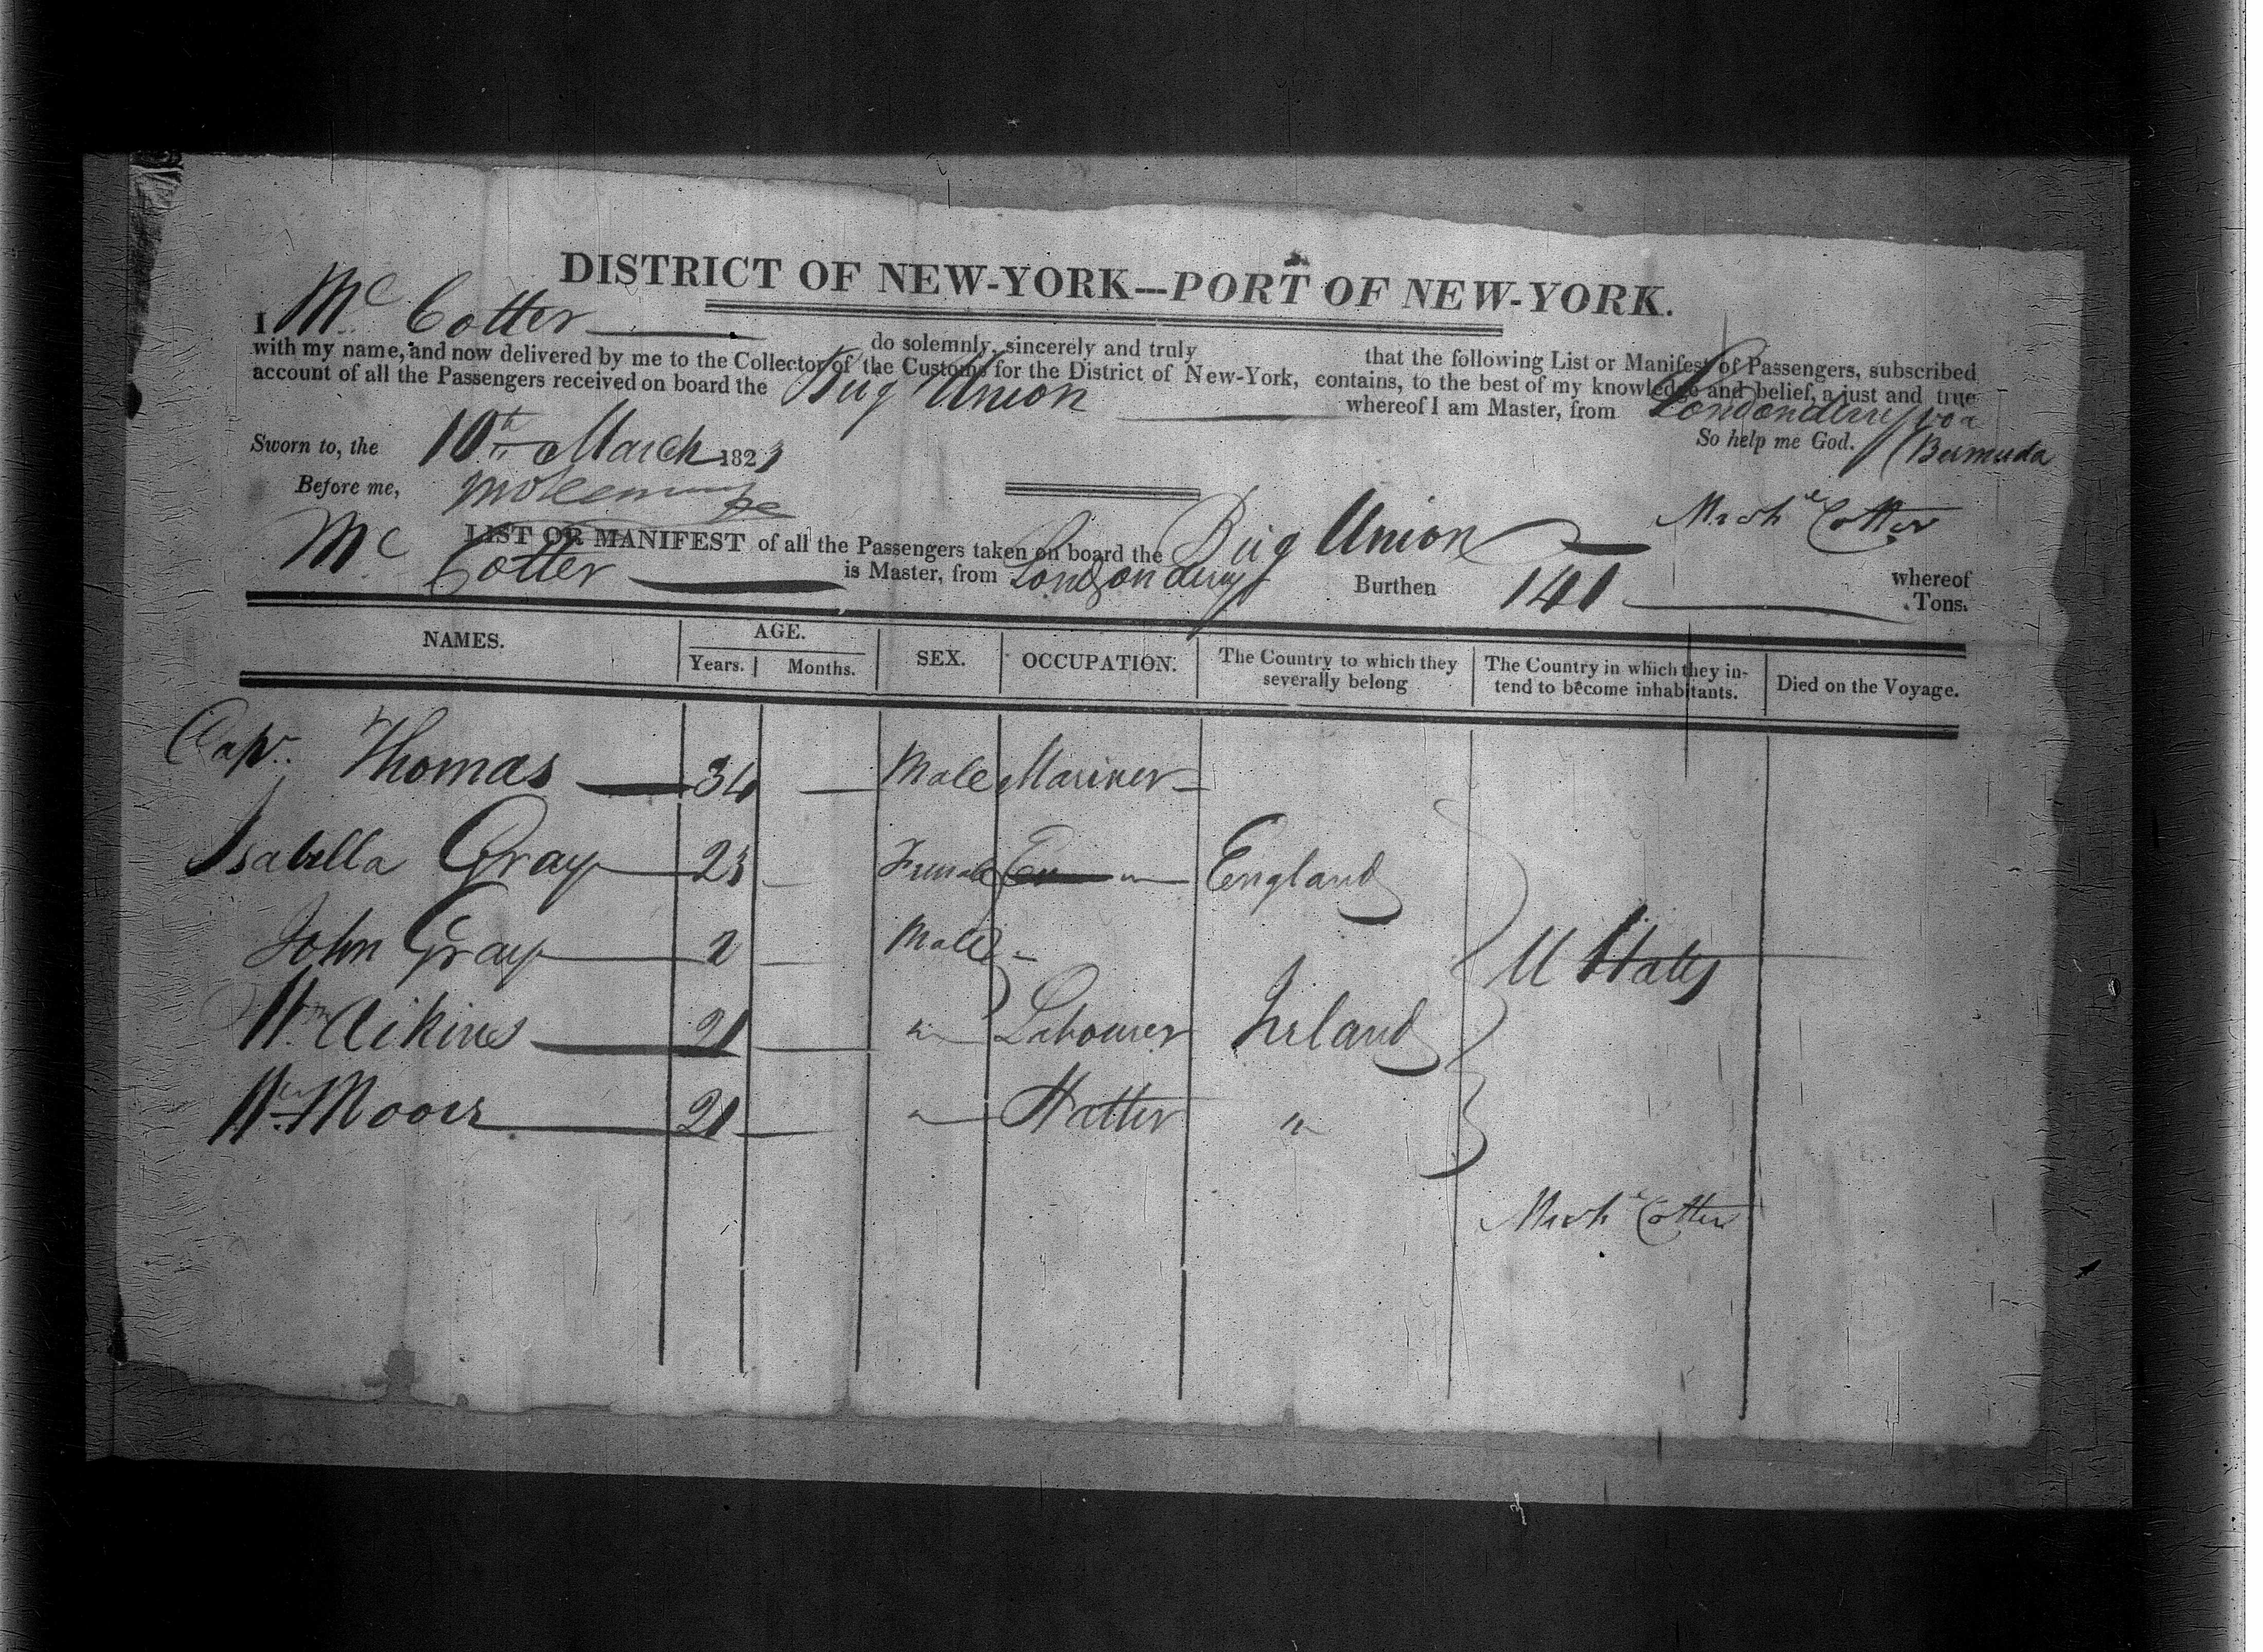 DISTRICT OF NEW-YORK---PORT OF NEW-YORK.
I Mc Cotter do solemnly, sincerely and truly that the following List or Manifest of Passengers, subscribed
with my name, and now delivered by me to the Collector of the Customs for the District of New-York, contains, to the best of my knowledge and belief, a just and true
account of all the Passengers received on board the Brig Union whereof I am Master, from Londonderry via
Bermuda
So help me God.
Sworn to, the 10th March 1823
Before me,
Michl Cotter
LIST OR MANIFEST of all the Passengers taken on board the Brig Union whereof
Mc Cotter is Master, from Londonderry Burthen 141 Tons.
NAMES. AGE. SEX. OCCUPATION. The Country to which they severally belong The Country in which they intend to become inhabitants. Died on the Voyage.
Years. Months.
Capt. Thomas 34 Male Mariner
Isabella Gray 23 Female England
John Gray 2 Male U States
Wm Aikins 21 " Labourer Ireland
Wm Moore 21 " Hatter "
Michl Cotter